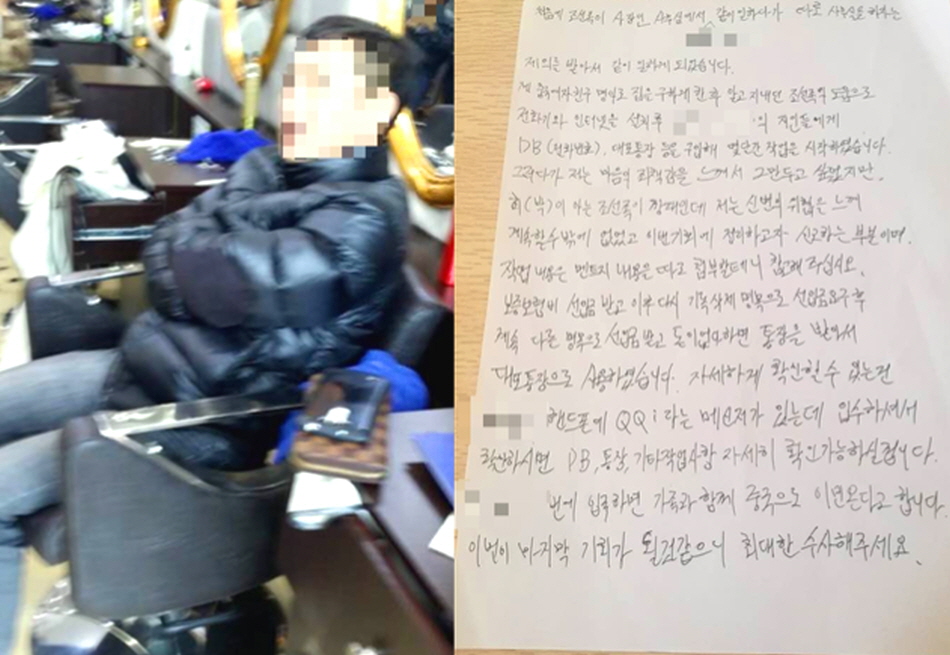 처음에 조선족이 사장인 사무실에서 같이 일하다가 따로 사무실을 하자는
제의를 받아서 같이 일하게 되었습니다.
제 여자친구 명의로 집을 구하게 한 후 알고지내던 조선족의 도움으로
전화기와 인터넷을 설치후 의 지인들에게
DB(전화번호), 대포통장 등을 구입해 작업을 시작하였습니다.
그러다가 저는 마음의 죄책감을 느껴서 그만두고 싶었지만,
이 아는 조선족이 깡패인데 저는 신변의 위협을 느껴
계속할수밖에 없었고 이번기회에 정리하고자 신고하는 부분이며,
작업 내용은 멘트지 내용을 따로 첨부할테니 참고해 주십시오.
보증보험비 선입금 받고 이후 다시 기록삭제 명목으로 선입금요구후
계속 다른 명목으로 선입금 받고 돈이없다하면 통장을 받아서
대포통장으로 사용하였습니다. 자세하게 확인할수 있는건
핸드폰에 QQi라는 메신저가 있는데 입수하셔서
확산하시면 DB, 통장, 기타작업사항 자세히 확인가능하실겁니다.
번에 입국하면 가족과 함께 중국으로 이민온다고 합니다.
이번이 마지막 기회가 될것같으니 최대한 수사해주세요.